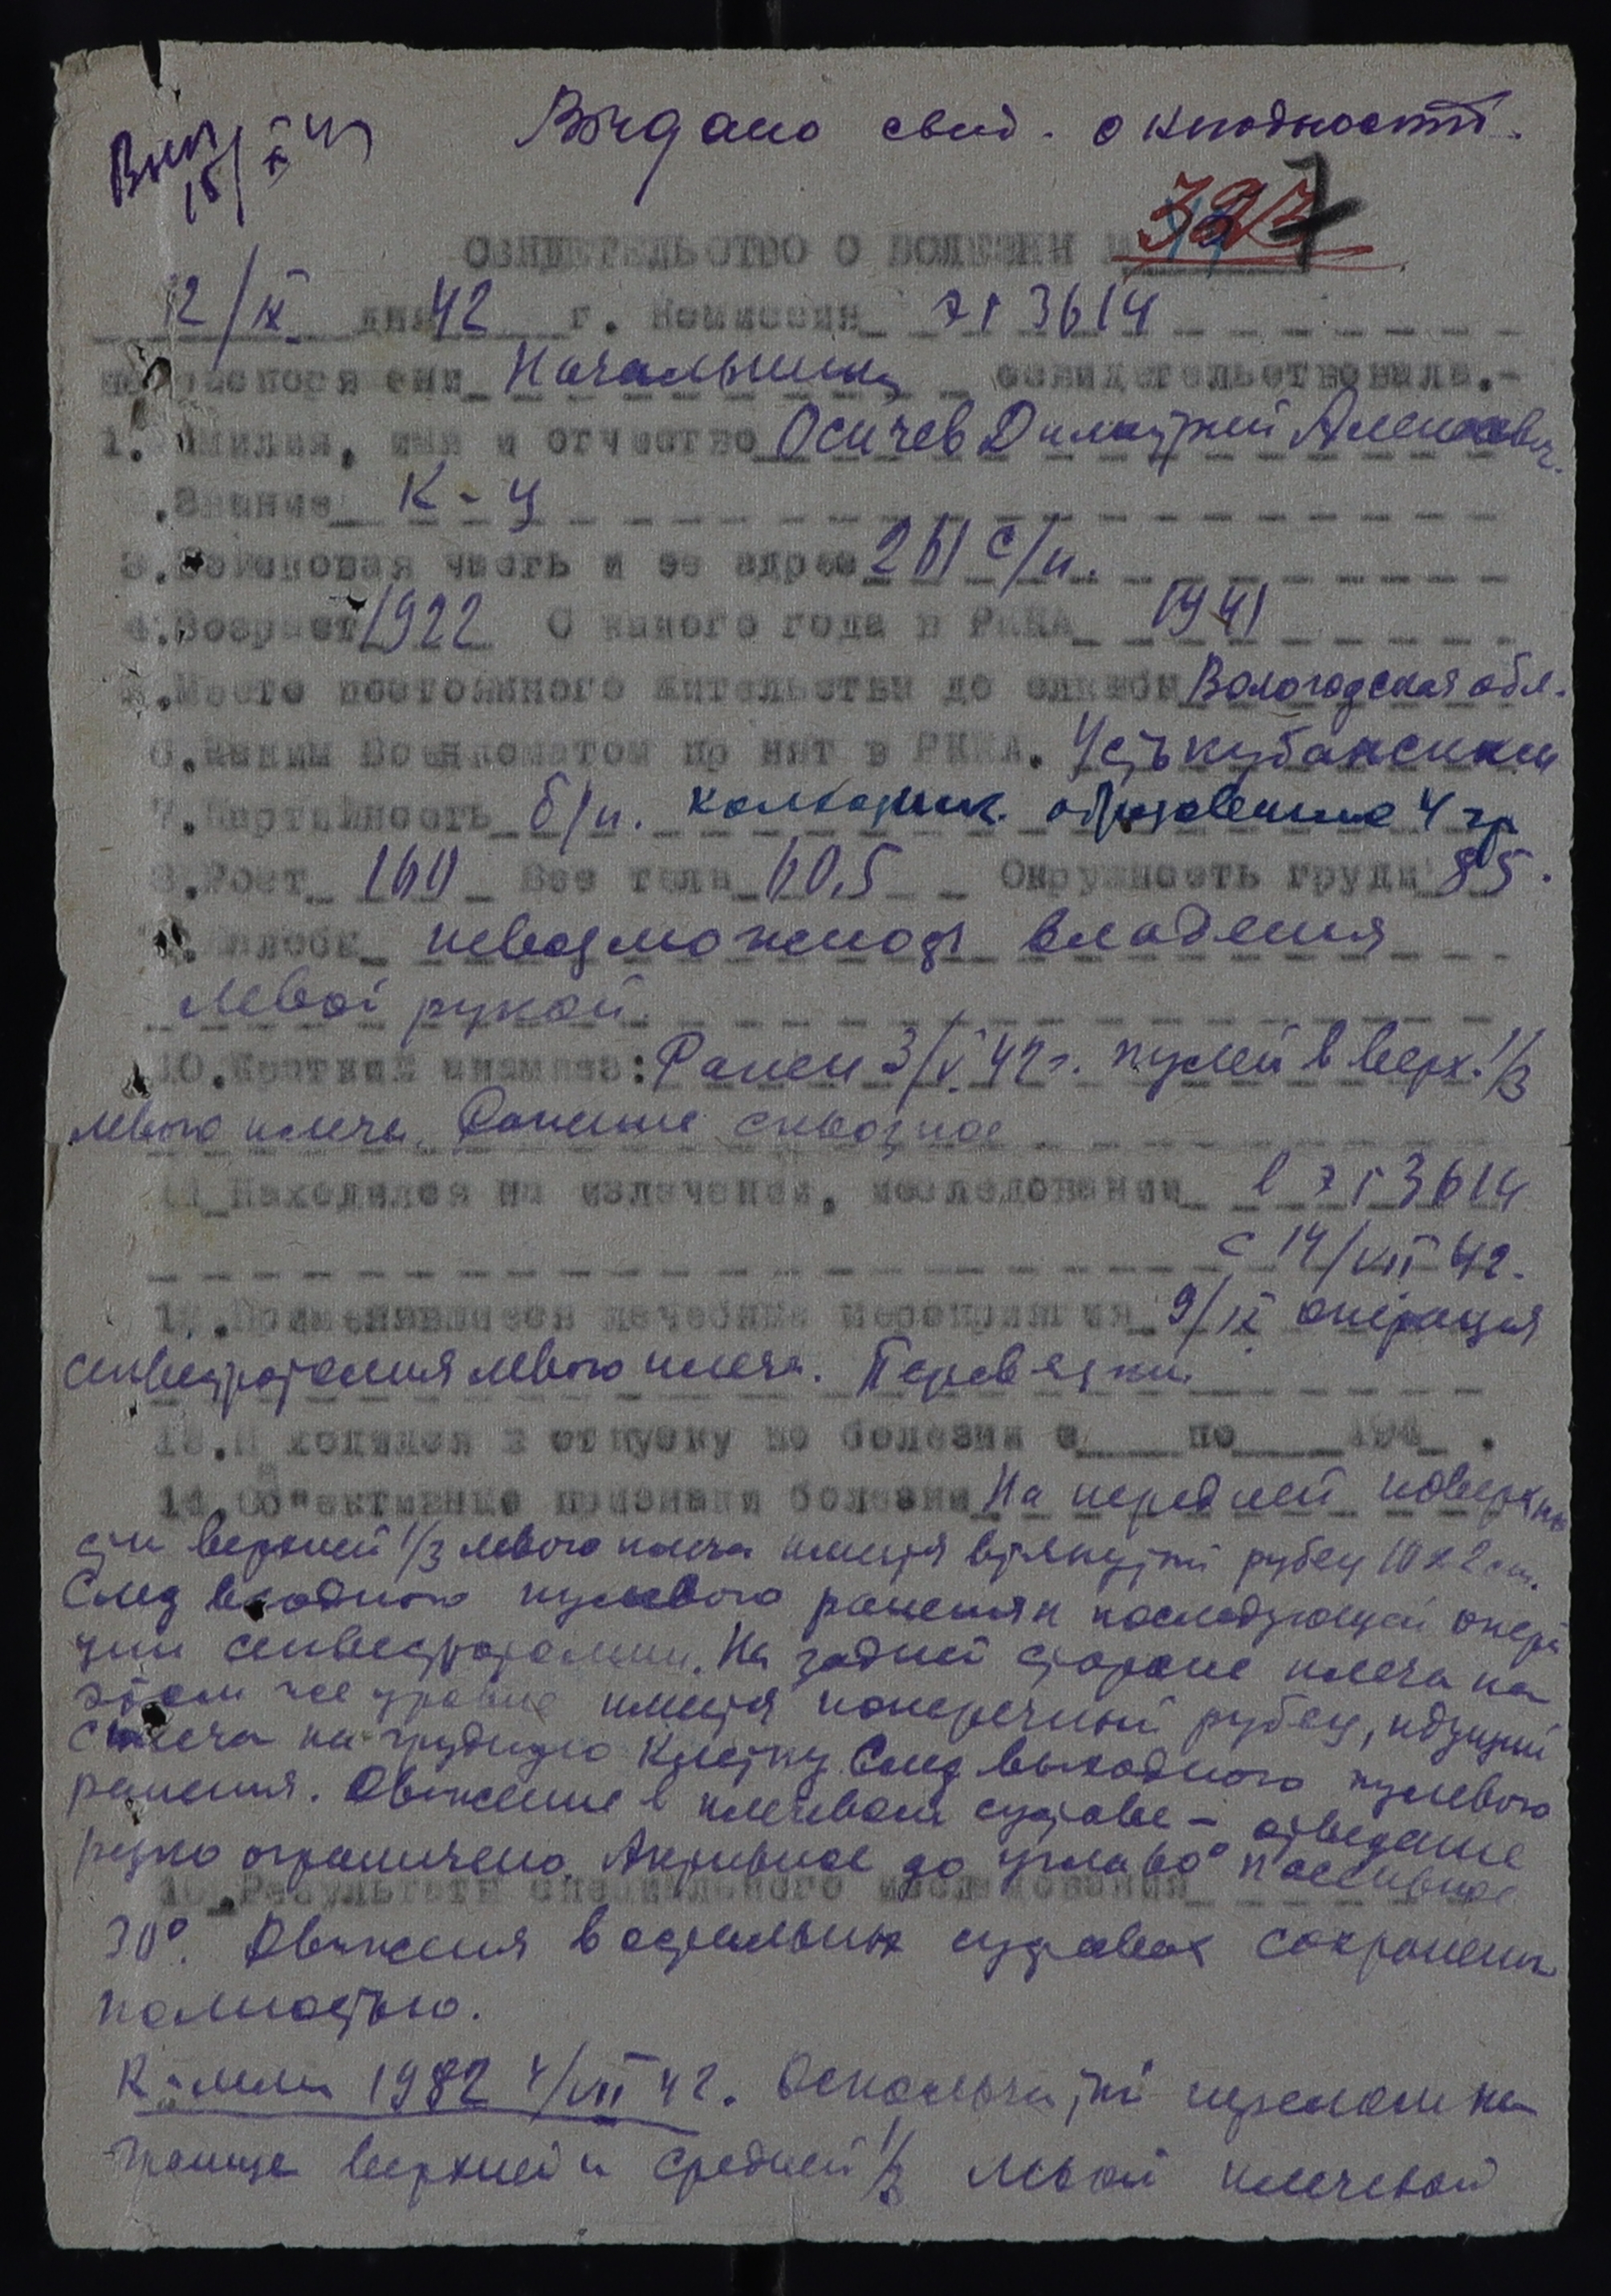 Выдано свид. о
15/X 42
327
СВИДЕТЕЛЬСТВО О БОЛЕЗНИ №
12/IX дня 42 г. Комиссия эг 3614
Начальника освидетельствовала.-
1. Фамилия, имя и отчество Осичев Димитрий Алексеевич.
2. Звание К-ц
3. Войсковая часть и ее адрес 261 с/п.
4. Возраст 1922 С какого года в РККА 1941
5. Место постоянного жительства до службы Вологодская обл.
6. Каким Военкоматом принят в РККА. Устькубанским
7. Партийность б/п. колхозник. образование 4 гр
8. Рост 160 Вес тела 60,5 Окружность груди 85.
9. Жалобы невозможность владения
левой рукой.
10. Краткий анамнез: Ранен 3/V 42 г. пулей в верх. 1/3
левого плеча. Ранение сквозное
11. Находился на излечении, исследовании в эг 3614
с 14/VII 42.
12. Применявшиеся лечебные мероприятия 9/IX операция
секвестротомия левого плеча. Перевязки.
13. Находился в отпуску по болезни с по 194 .
14. Объективные признаки болезни На передней поверхно
сти верхней 1/3 левого плеча имеется втянутый рубец 10 х 2 см.
След входного пулевого ранения и последующей опера
ции секвестротомии. На задней стороне плеча на
этом же уровне имеется поперечный рубец, идущий
с плеча на грудную клетку. След выходного пулевого
ранения. Движение в плечевом суставе - отведение
резко ограничено. Активное до угла 60° пассивное
15. Результаты специального исследования
30°. Движения в остальных суставах сохранены
полностью.
1982 4/VII 42. Оскольчатый перелом на
границе верхней и средней 1/3 левой плечевой